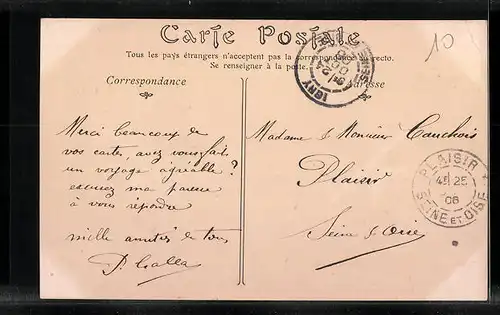 Carte Postale
10
Tous les pays étrangers n'acceptent pas la correspondance au recto.
Se renseigner à la poste.
Correspondance
Adresse
IGNY
Merci beaucoup de
vos cartes, avez vous fait
un voyage agréable ?
excusez ma paresse
à vous répondre
mille amitiés de tous
P. Galla
Madame & Monsieur Cauchois
Plaisir
Seine & Oise
PLAISIR
25
06
SEINE ET OISE